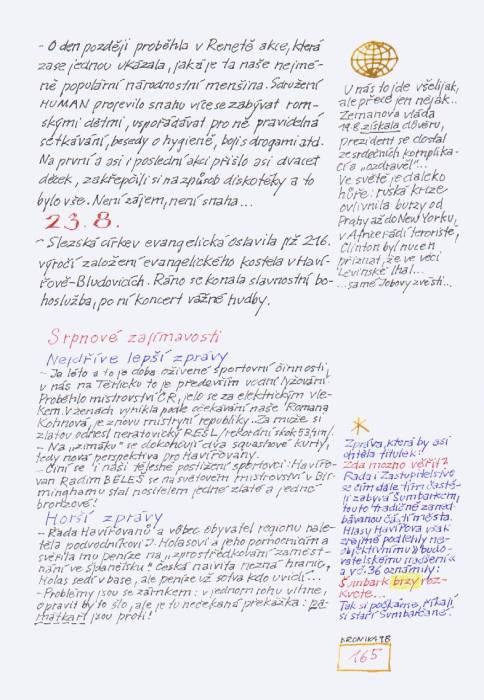 - O den později proběhla v Renetě akce, která
zase jednou ukázala, jaká je ta naše nejmé-
ně populární národnostní menšina. Sdružení
HUMAN projevilo snahu více se zabývat rom-
skými dětmi, uspořádávat pro ně pravidelná
setkávání, besedy o hygieně, boji s drogami atd.
Na první a asi i poslední akci přišlo asi dvacet
dětek, zakřepčili si na způsob diskotéky a to
bylo vše. Není zájem, není snaha...
23.8.
- Slezská církev evangelická oslavila již 216.
výročí založení evangelického kostela v Haví-
řově-Bludovicích. Ráno se konala slavnostní bo-
hoslužba, po ní koncert vážné hudby.
Srpnové zajímavosti
Nejdříve lepší zprávy
- Je léto a to je doba oživené sportovní činnosti,
u nás na Těrlicku to je především vodní lyžování.
Proběhlo mistrovství ČR, jelo se za elektrickým vle-
kem. V ženách vynikla podle očekávání naše Romana
Kohnová, je znovu mistryní republiky. Za muže si
zlatou odnesl neratovický REŠL /rekordní skok 53,1m/.
- Na "zimáku" se dokončují dva squashové kurty,
tedy nová perspektiva pro Havířovany.
- Činí se i naši tělesně postižení sportovci: Havířo-
van Radim BELEŠ se na světovém mistrovství v Bir-
minghamu stal nositelem jedné zlaté a jedné
bronzové!
Horší zprávy
- Řada Havířovanů a vůbec obyvatel regionu nale-
těla podvodníkovi J. Holasovi a jeho pomocníkům a
svěřila mu peníze na "zprostředkování zaměst-
nání ve Španělsku". Česká naivita nezná hranic,
Holas sedí v base, ale peníze už sotva kdo uvidí...
- Problémy jsou se zámkem: v jednom rohu vlhne,
opravit by to šlo, ale je tu nečekaná překážka: pa-
mátkáři jsou proti!
U nás to jde všelijak,
ale přece jen nějak...
Zemanova vláda
19.8. získala důvěru,
prezident se dostal
ze srdečních komplika-
cí a "ozdravěl"...
Ve světě je daleko
hůře: ruská krize
ovlivnila burzy od
Prahy až do New Yorku,
v Africe řádí teroristé,
Clinton byl nucen
přiznat, že ve věci
Levinské lhal...
...samé Jobovy zvěsti...
Zpráva, která by asi
chtěla titulek:
Zda možno věřit?
Rada i Zastupitelstvo
se čím dále tím častě-
ji zabývá Šumbarkem,
touto tradičně zaned-
bávanou částí města.
Hlasy Havířova však
zřejmě podlehly ne-
objektivnímu "budo-
vatelskému nadšení"
a v č. 36 oznámily:
Šumbark brzy roz-
kvete...
Tak si počkáme, říkají
si staří Šumbarčané.
KRONIKA 98
165